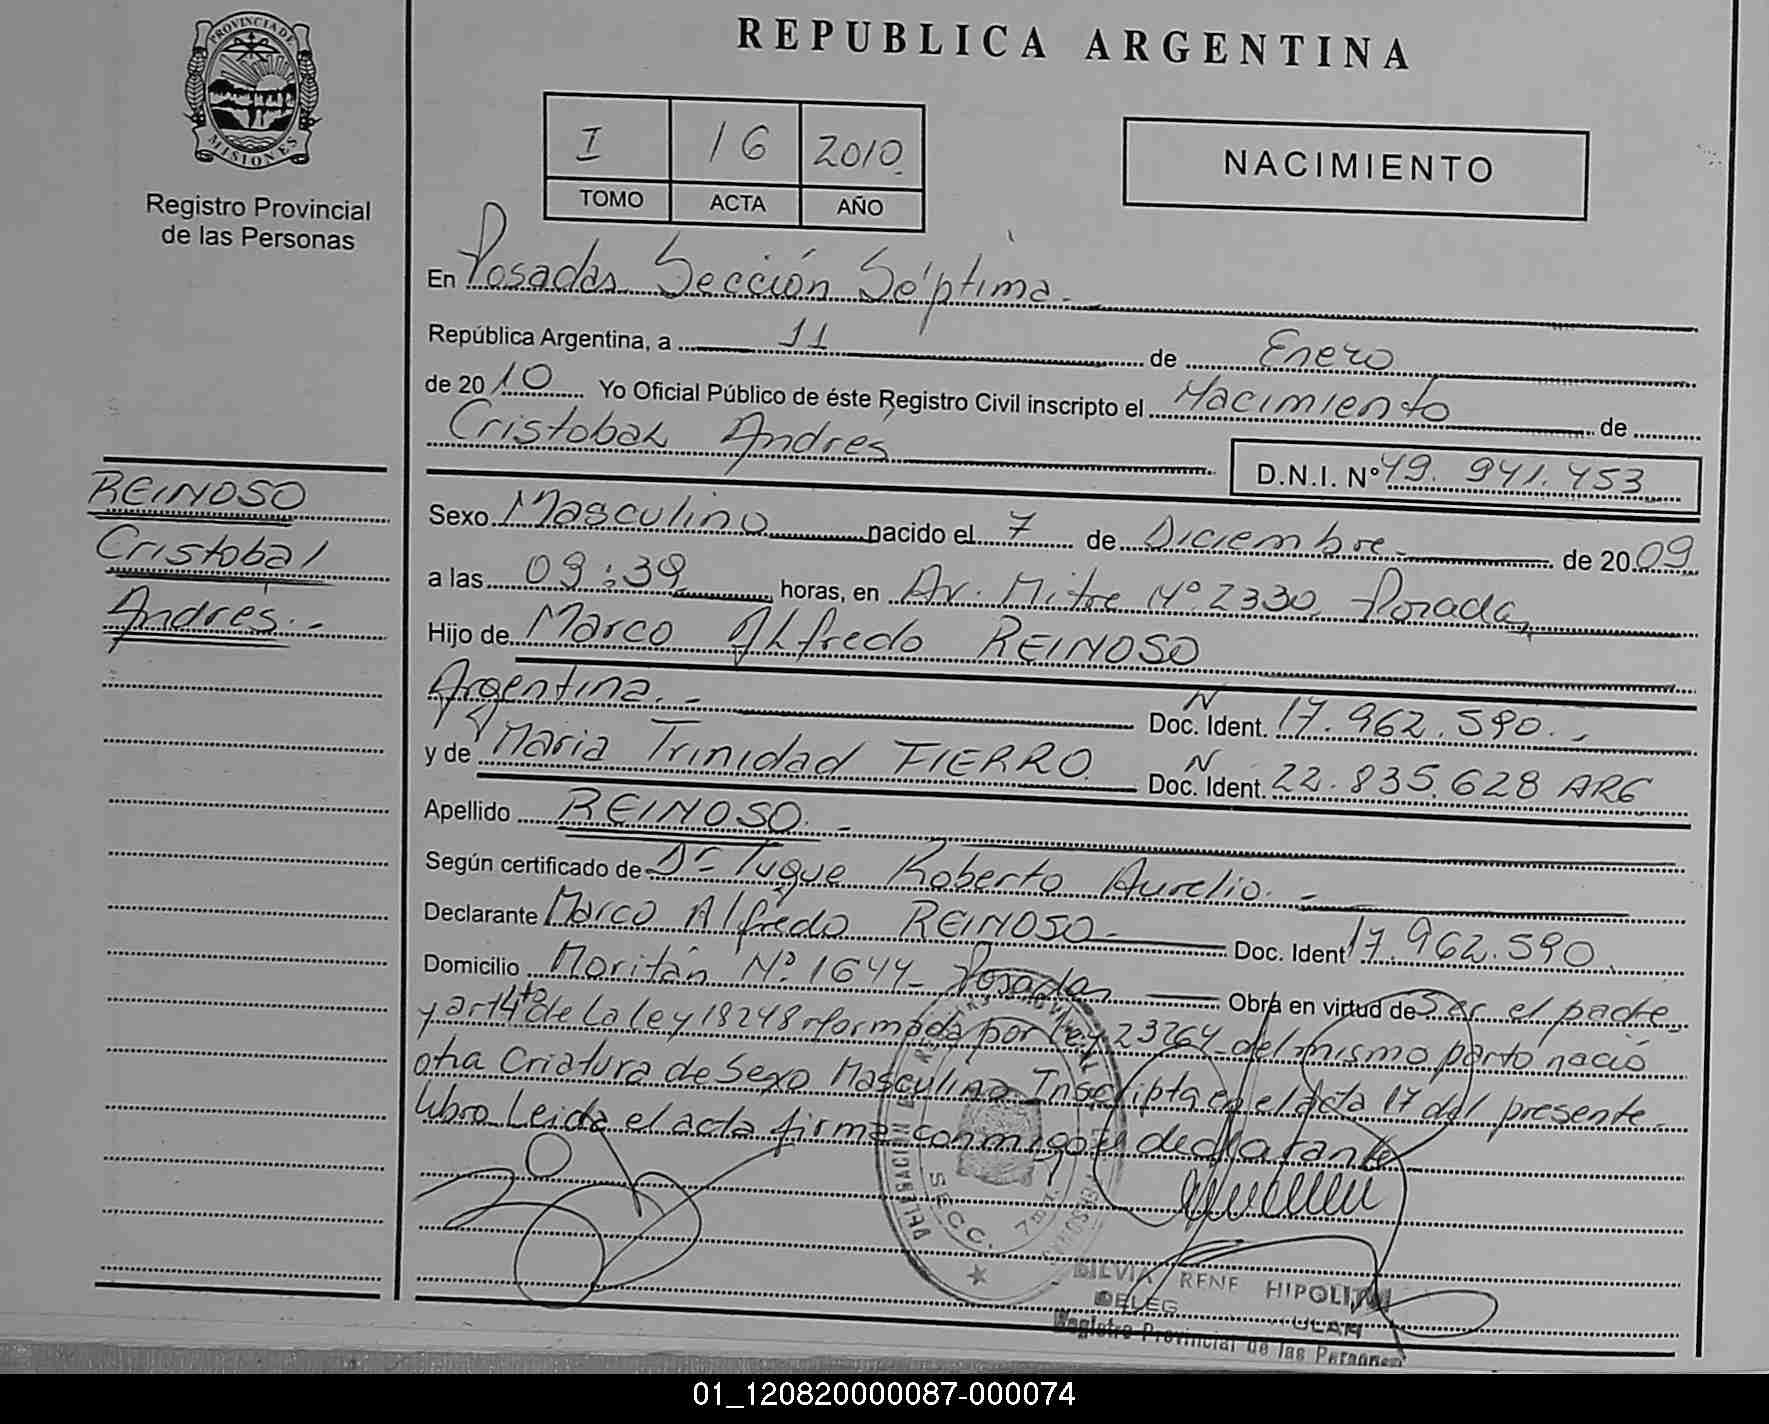 PROVINCIA DE MISIONES
Registro Provincial
de las Personas
REPUBLICA ARGENTINA
I 16 2010
TOMO ACTA AÑO
NACIMIENTO
En Posadas Sección Séptima
República Argentina, a 11 de Enero
de 2010 Yo Oficial Público de éste Registro Civil inscripto el Nacimiento de
Cristobal Andrés
D.N.I. Nº 49.941.453
REINOSO
Cristobal
Andrés.-
Sexo Masculino nacido el 7 de Diciembre.- de 2009
a las 09:39 horas, en Av. Mitre Nº 2330 Posadas
Hijo de Marco Alfredo REINOSO
Argentina.- Doc. Ident. N 17.962.590.-
y de Mª Maria Trinidad FIERRO Doc. Ident. N 22.835.628 ARG
Apellido REINOSO.-
Según certificado de Dr Tuque Roberto Aurelio.-
Declarante Marco Alfredo REINOSO- Doc. Ident 17.962.590.
Domicilio Moritán Nº 1644- Posadas Obra en virtud de ser el padre
y art 4to de La ley 18248 reformada por ley 23264- del mismo parto nació
otra Criatura de Sexo Masculino Inscripta en el acta 17 del presente
libro Leida el acta firma conmigo el declarante
DELEGACION
SECC. 7ma
SILVIA RENE HIPOLITO
DELEG TITULAR
Registro Provincial de las Personas
01_120820000087-000074